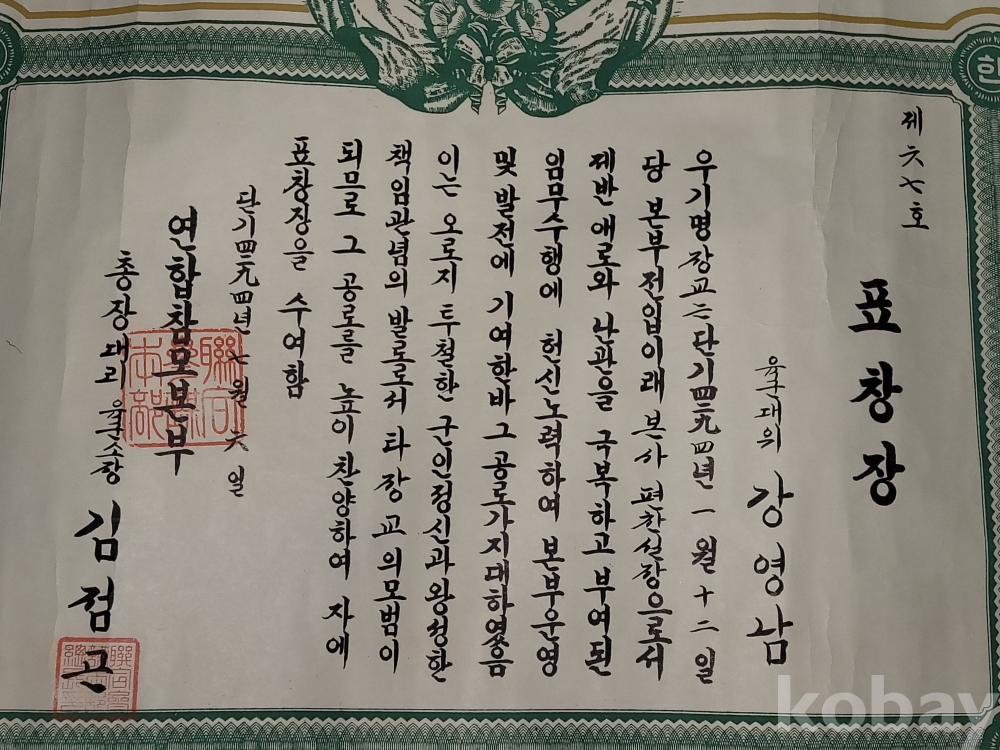 제六七호
표창장
육군대위 강영남
우기명장교는단기四二九四년一월十二일
당 본부전입이래 본사 편찬실장으로서
제반 애로와 난관을 극복하고 부여된
임무수행에 헌신노력하여 본부운영
및 발전에 기여한바 그공로가지대하였음
이는 오로지 투철한 군인정신과왕성한
책임관념의 발로로서 타장교의모범이
되므로 그 공로를 높이 찬양하여 자에
표창장을 수여함
단기四二九四년七월六일
연합참모본부
총장대리 육군소장 김점곤
聯合參謀本部
한
kobay